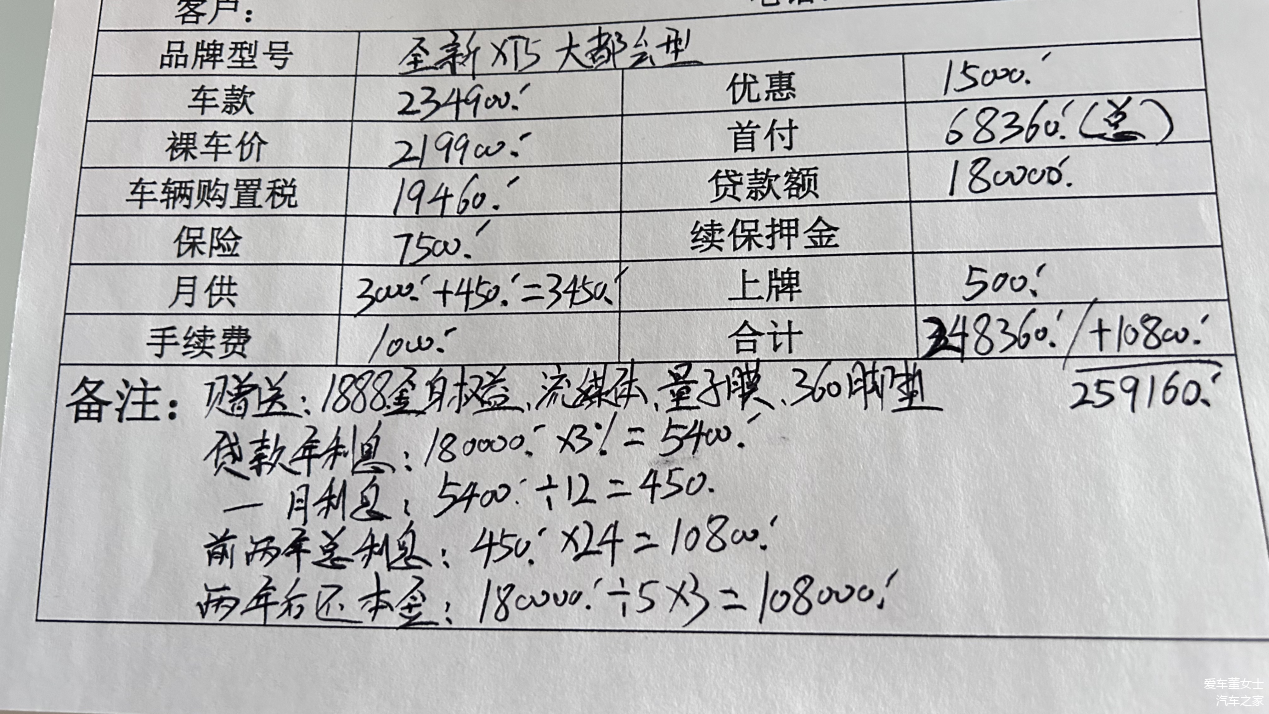 客户：
品牌型号 全新XT5 大都会型
车款 234900. 优惠 15000.
裸车价 219900. 首付 68360.(总)
车辆购置税 19460. 贷款额 180000.
保险 7500. 续保押金
月供 3000.+450.=3450. 上牌 500.
手续费 1000. 合计 248360. / +10800.
259160.
备注： 赠送：1888金身权益、流媒体、量子膜、360脚垫
贷款年利息：180000.×3%=5400.
一月利息：5400.÷12=450.
前两年总利息：450.×24=10800.
两年后还本金：180000.÷5×3=108000.
爱车董女士
汽车之家